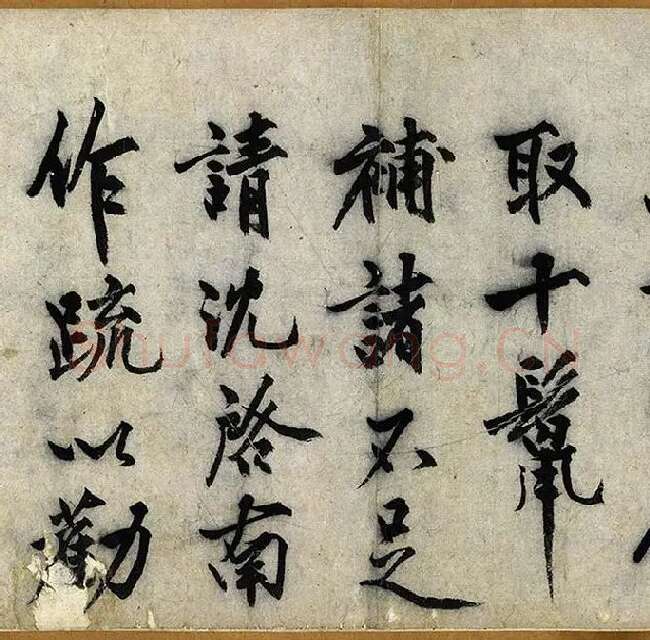 取十鬣
補諸不足
請沈啓南
作疏以勸
Shufawang.CN